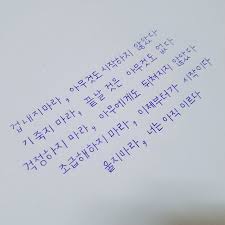 겁내지마라, 아무것도 시작하지 않았다
기죽지 마라, 끝날 것은 아무것도 없다
걱정하지 마라, 아무에게도 뒤처지지 않았다
조급해하지 마라, 이제부터가 시작이다
울지마라, 너는 아직 이르다